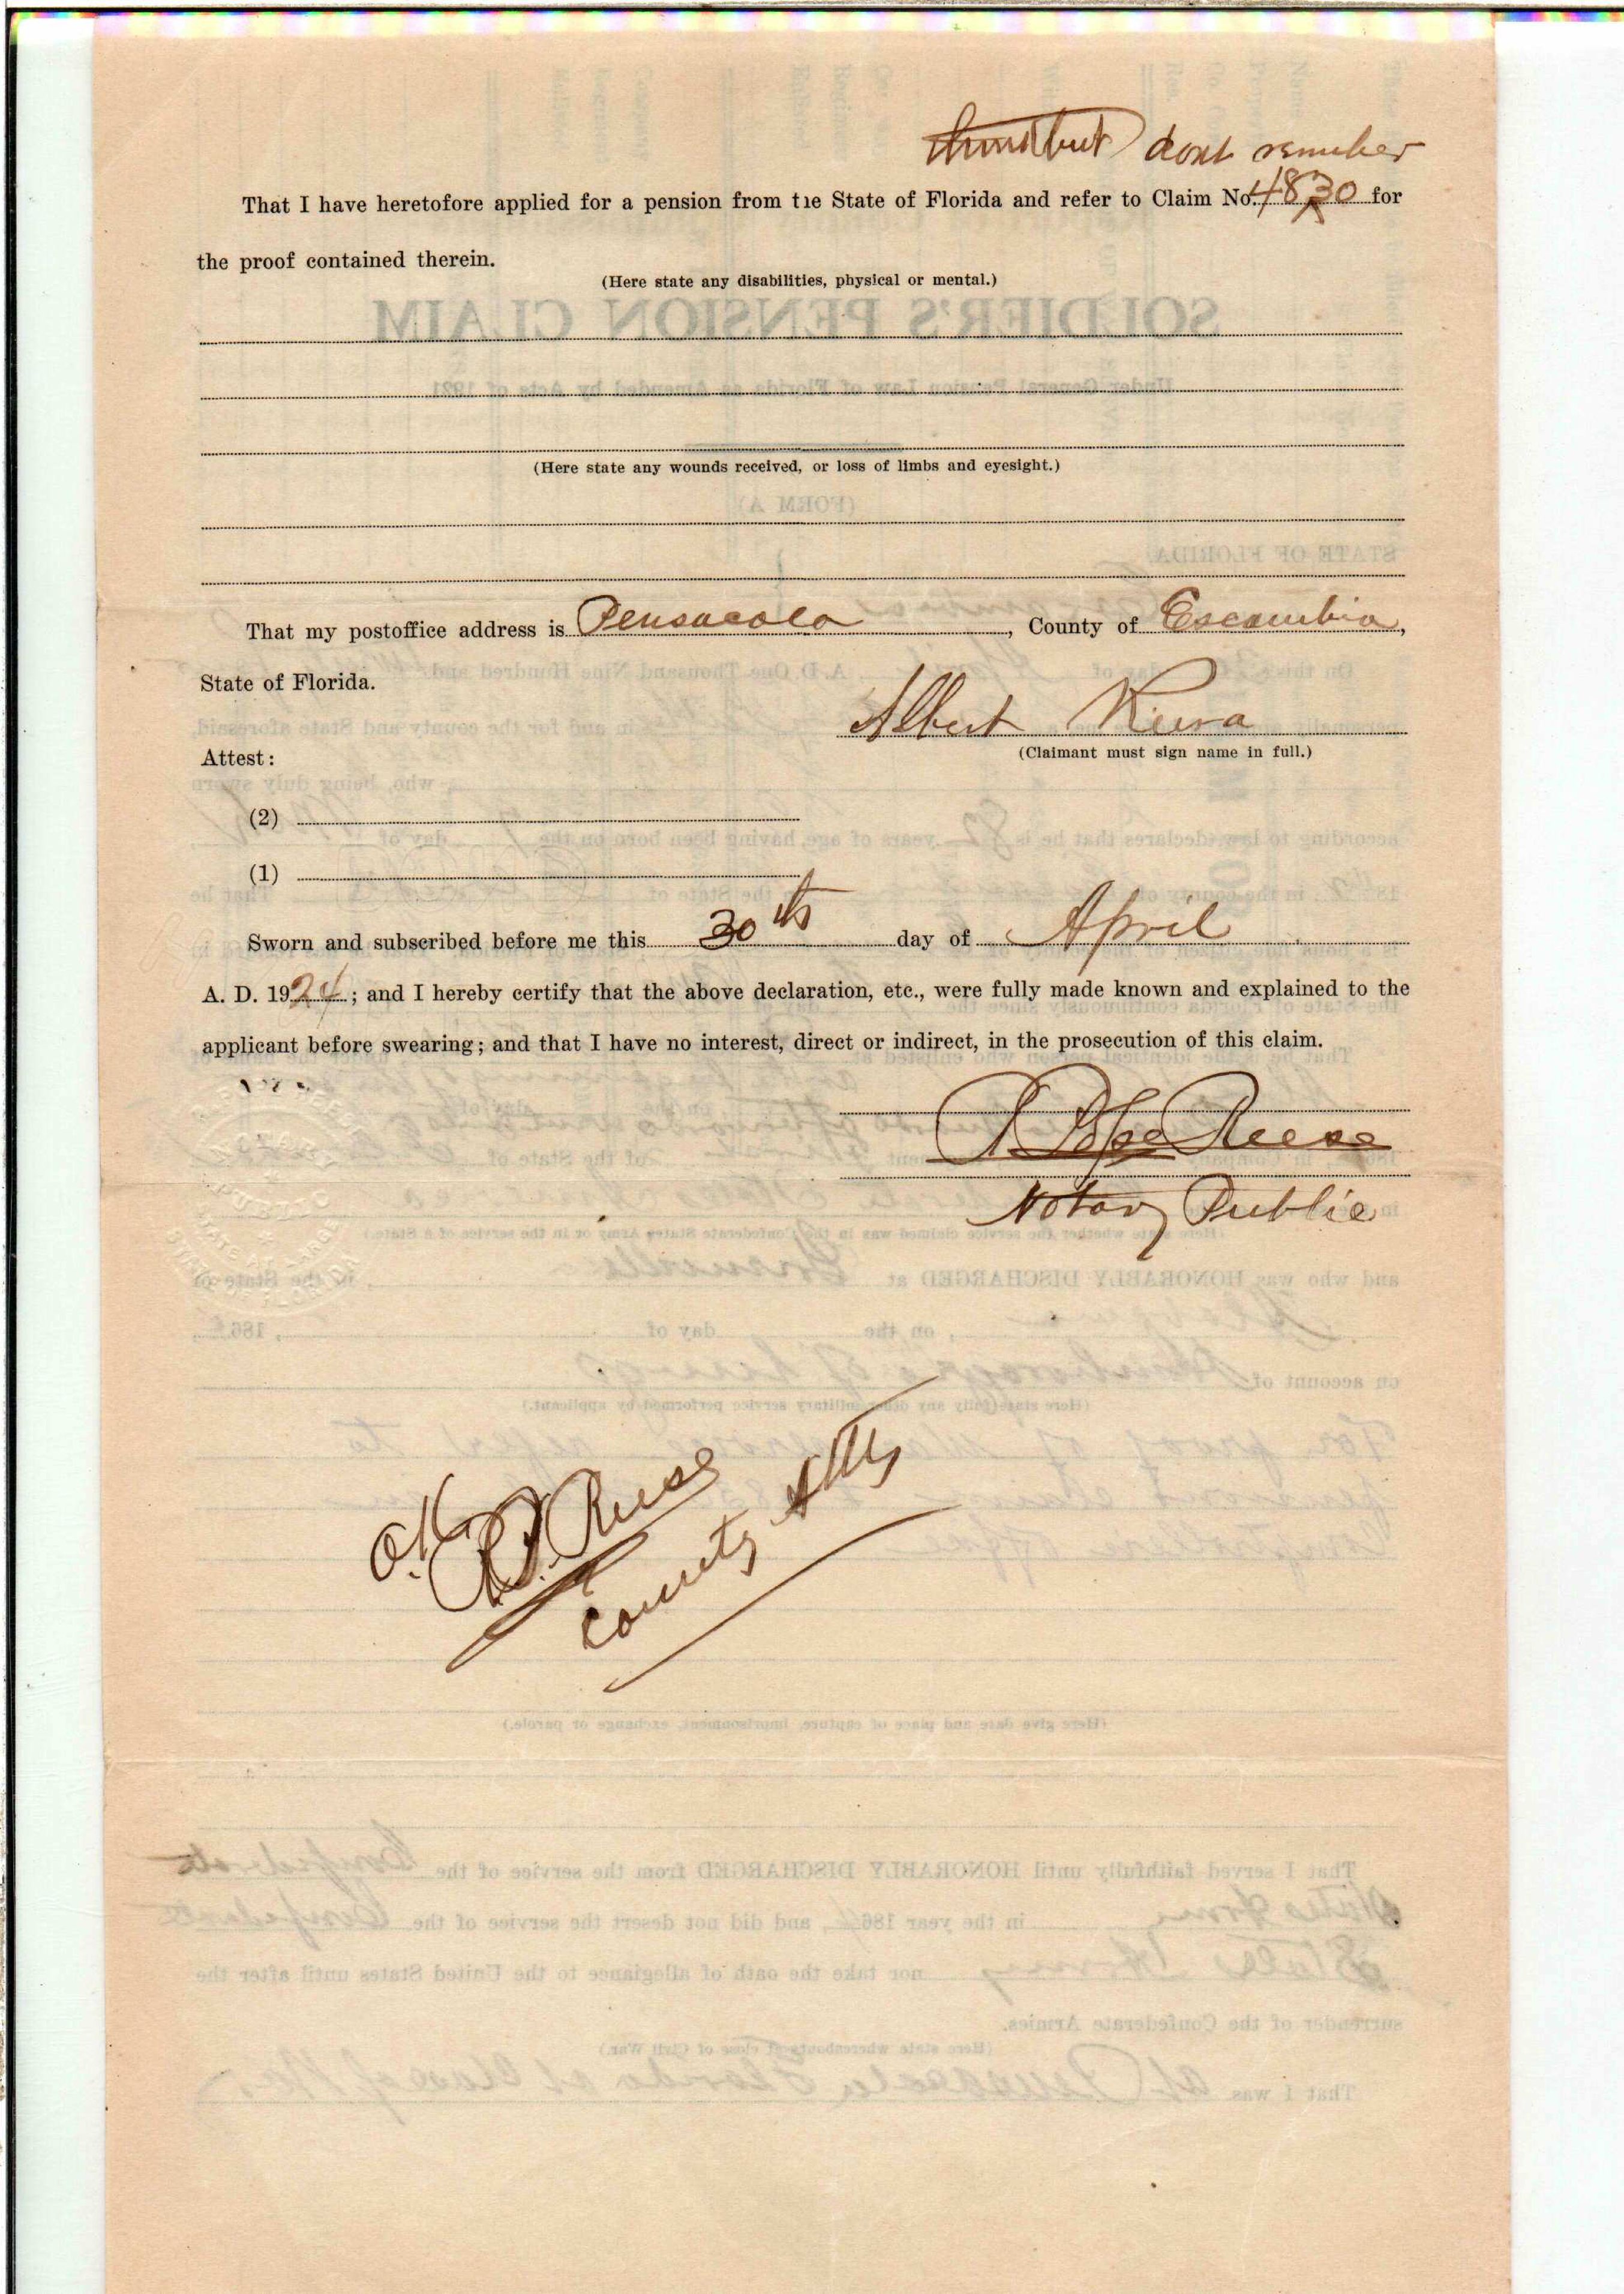 dont remember
That I have heretofore applied for a pension from the State of Florida and refer to Claim No. 4830 for
the proof contained therein.
(Here state any disabilities, physical or mental.)
(Here state any wounds received, or loss of limbs and eyesight.)
That my postoffice address is Pensacola, County of Escambia,
State of Florida.
Albert Riera
(Claimant must sign name in full.)
Attest:
(2)
(1)
Sworn and subscribed before me this 30th day of April
A. D. 1924; and I hereby certify that the above declaration, etc., were fully made known and explained to the
applicant before swearing; and that I have no interest, direct or indirect, in the prosecution of this claim.
R Pope Reese
Notary Public
O.K.
R.P. Reese
County Atty